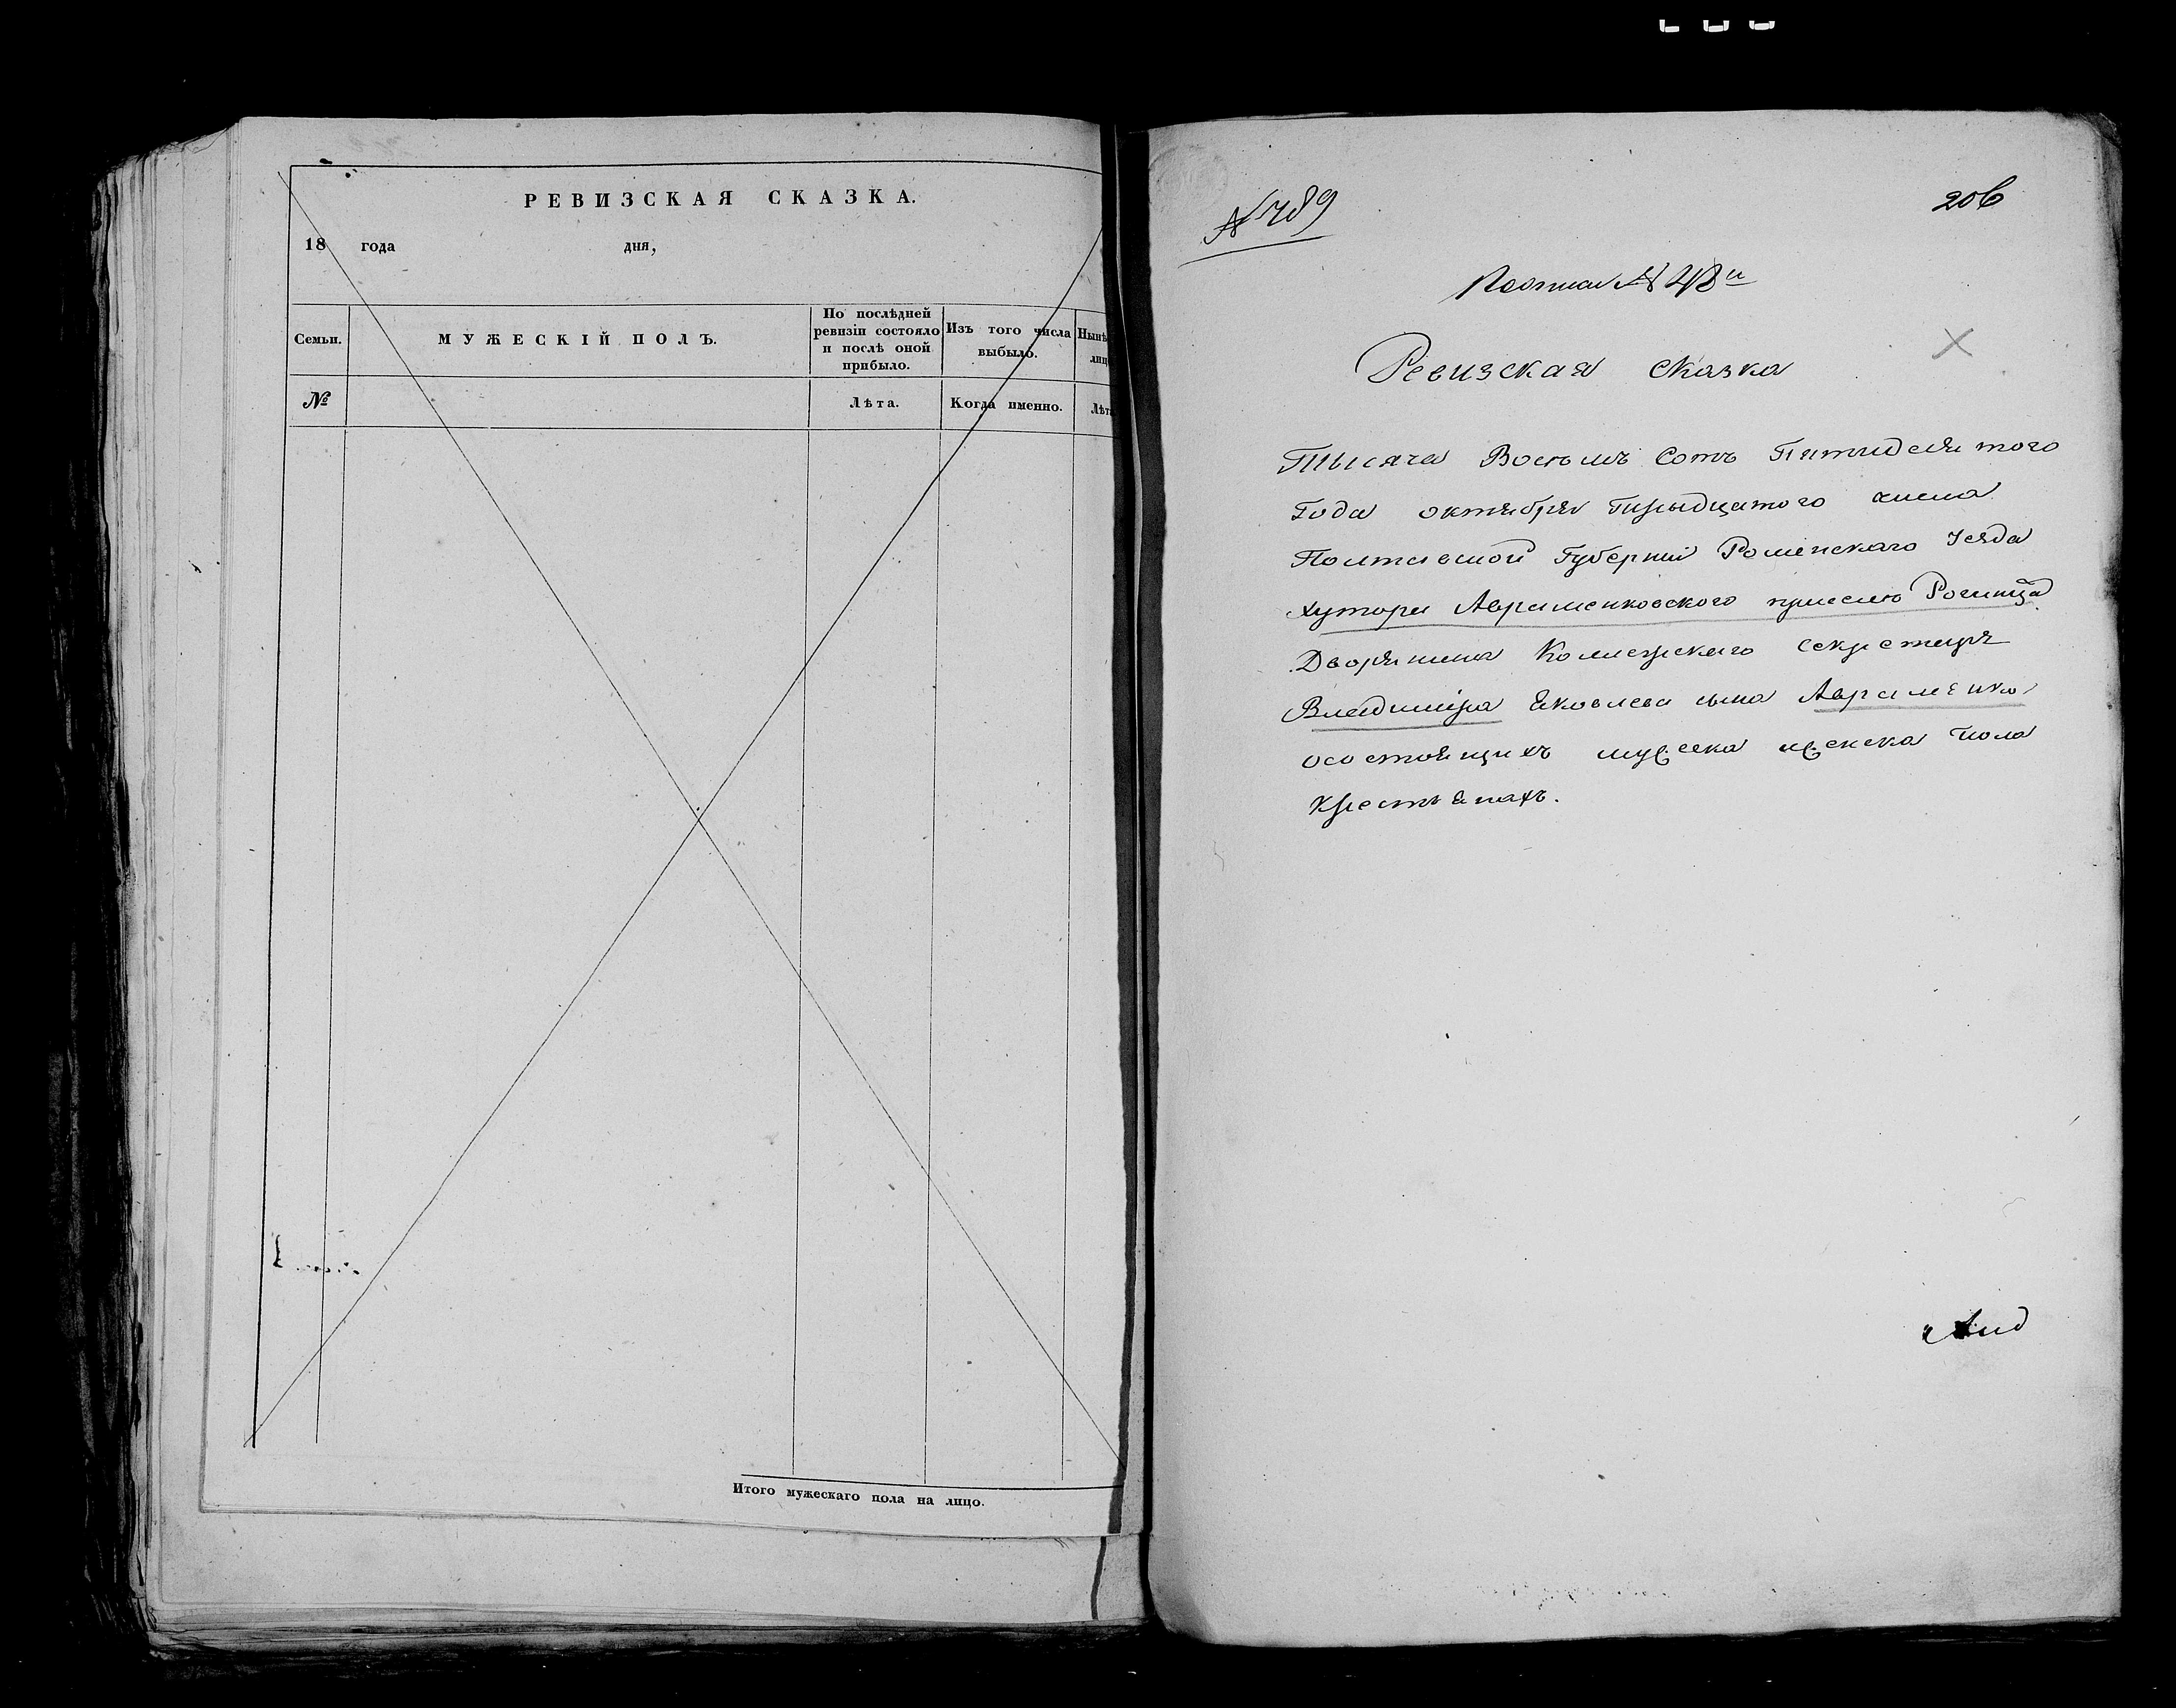 РЕВИЗСКАЯ СКАЗКА.
18 года дня,
Семьи.
МУЖЕСКІЙ ПОЛЪ.
По послѣдней
ревизіи состояло
и послѣ оной
прибыло.
Изъ того числа
выбыло.
Нынѣ
лиц
№
Лѣта.
Когда именно.
Лѣт
Итого мужескаго пола на лицо.
№ 789
206
№ 48й
Ревизская Сказка
Тысяча Восъмъ Сотъ Пятидесятого
Года октября тирыдцатого числа
Полтавской Губерніи Роменскаго Уезда
хутора Авраменковского при селе Рогинца
Дворянина Коллежскаго Секретаря
Владиміра Яковлева сына Авраменка
осостоящихъ мужеска женска пола
крестьянахъ.